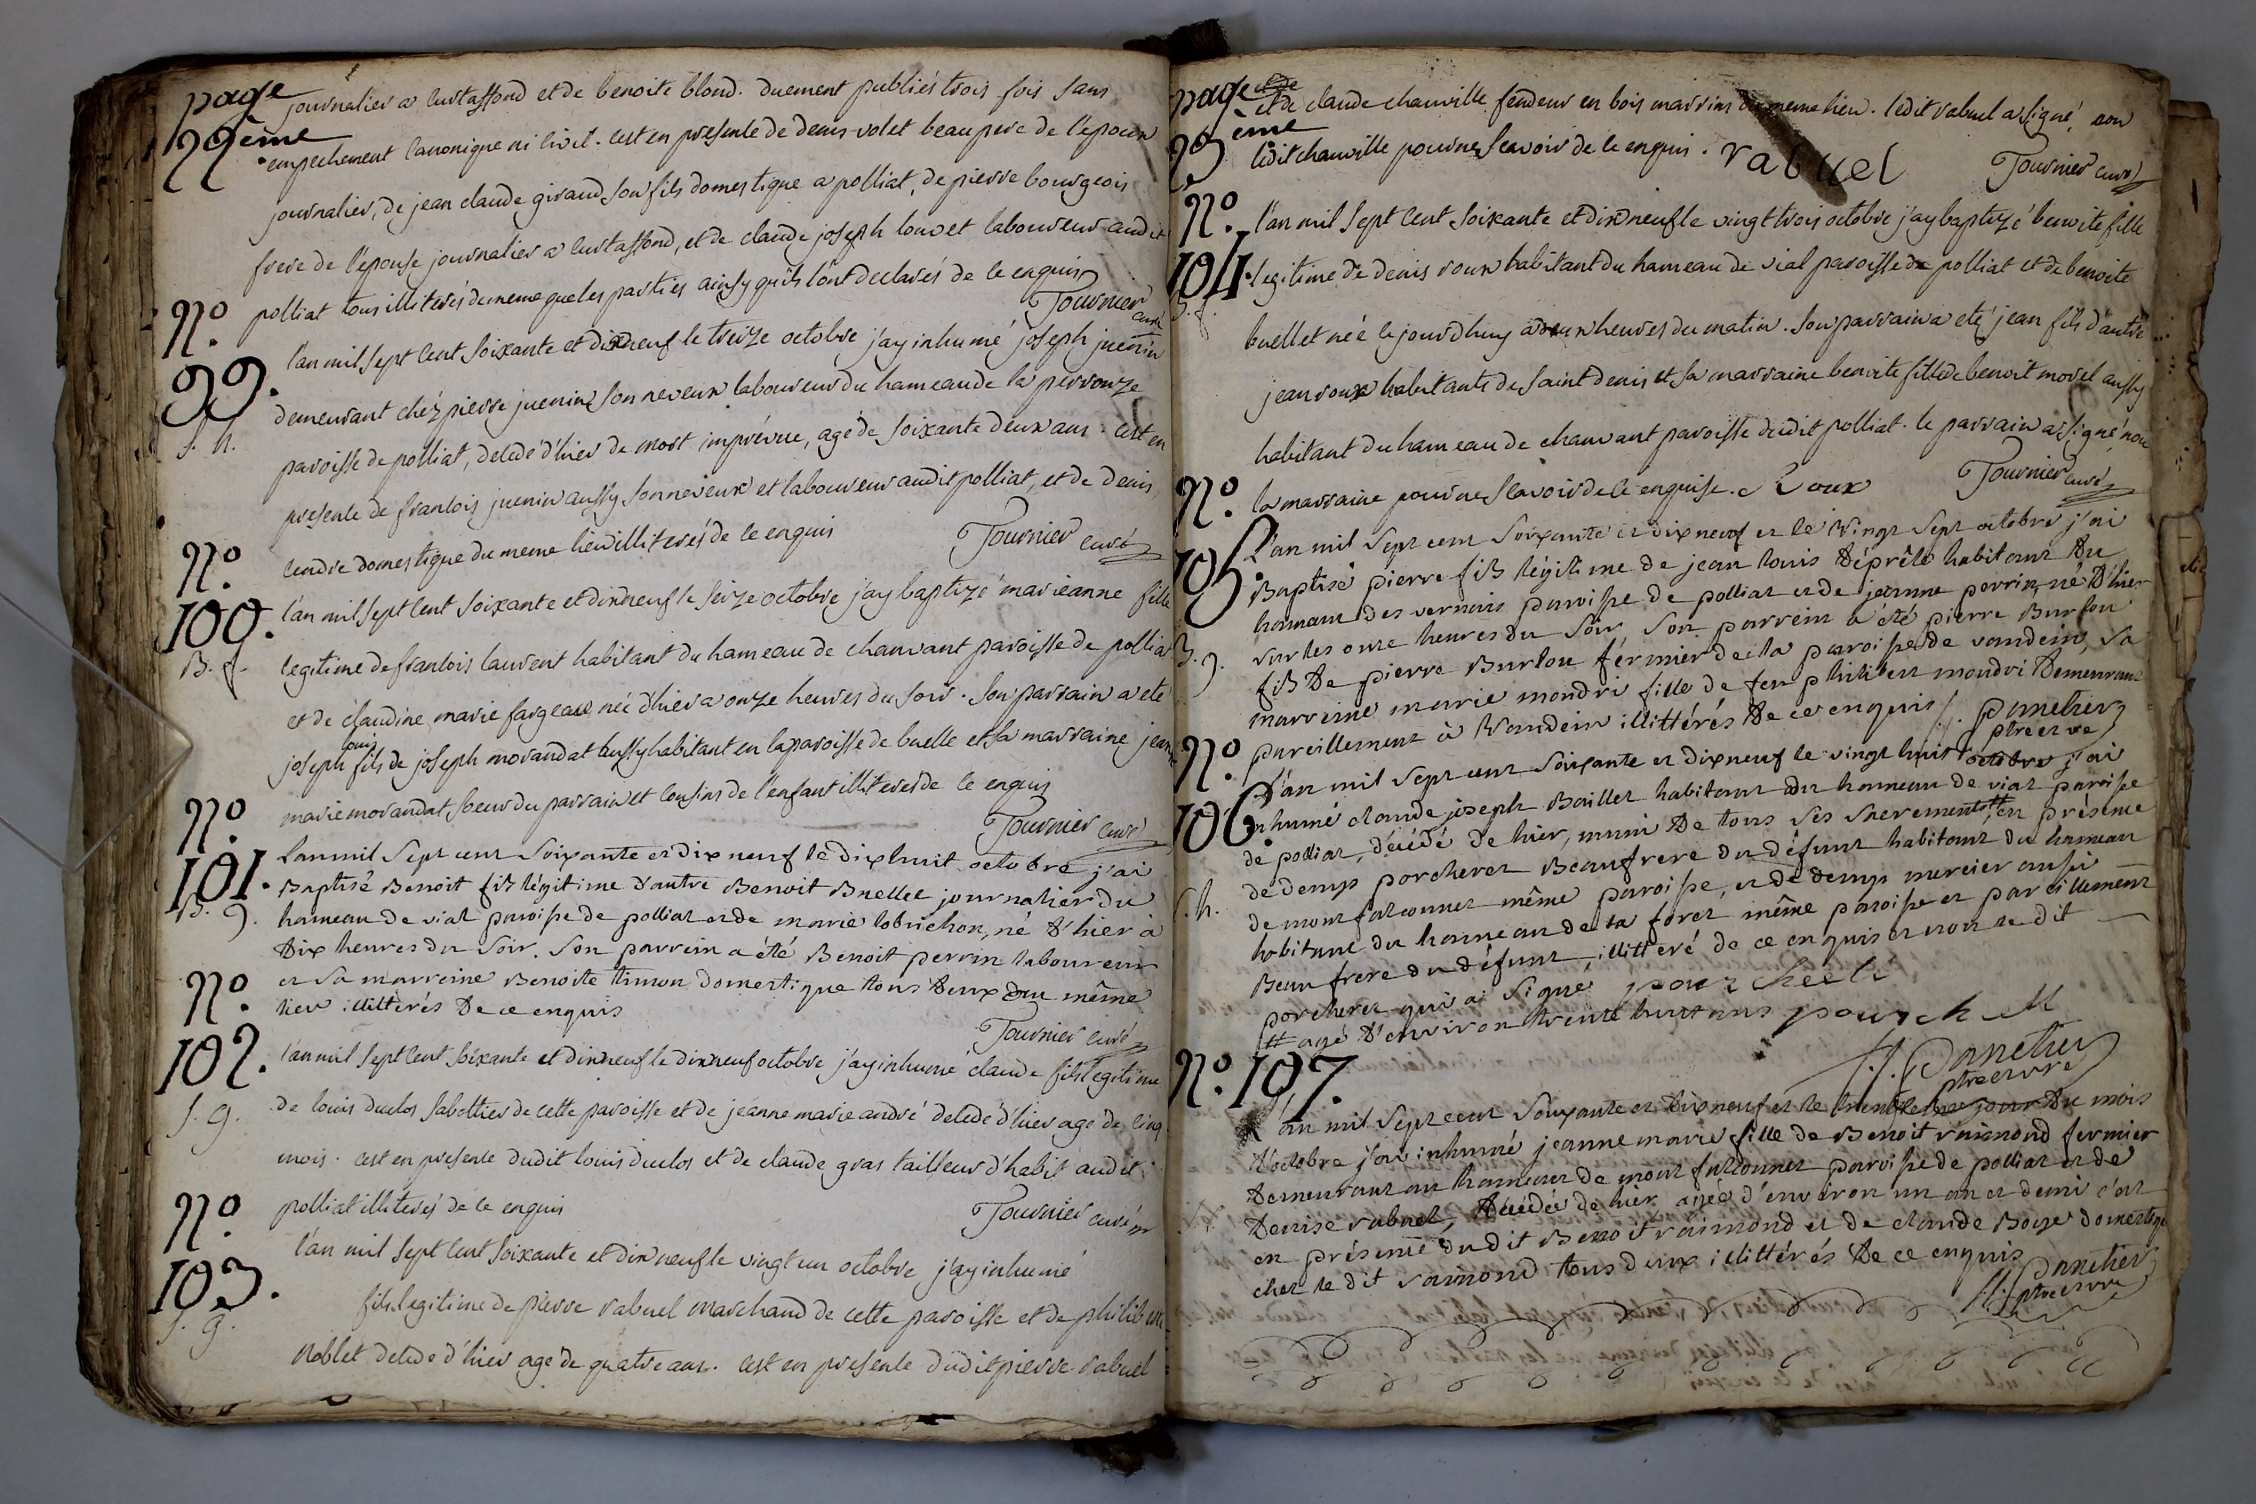 page
22ème
journalier a curtaffond et de benoite blond. duement publiés trois fois sans
empechement canonique ni civil. cest en presence de denis volet beaupere de l'epoux
journalier, de jean claude giraud son fils domestique a polliat, de pierre bourgeois
frere de l'epouse journalier a curtaffond, et de claude joseph louvet laboureur audit
polliat tous illiterés de meme que les parties ainsy qu'ils l'ont declarés de ce enquis
Tournier curé
N.º 99.
S. h.
l'an mil sept cent soixante et dixneuf le treize octobre j'ay inhumé joseph juenin
demeurant chéz pierre juenin son neveux laboureur du hameau de la perrouze
paroisse de polliat, decedé d'hier de mort imprévue, agé de soixante deux ans. cest en
presence de francois juenin aussy son neveux et laboureur audit polliat, et de denis
cendre domestique du meme lieu illiterés de ce enquis
Tournier curé
N.º 100.
B. f.
l'an mil sept cent soixante et dixneuf le seize octobre j'ay baptizé marieanne fille
legitime de francois laurent habitant du hameau de chanvant paroisse de polliat
et de claudine marie fargeau née d'hier a onze heures du soir. son parrain a eté
joseph fils de joseph morandat aussy habitant en la paroisse de buelle et sa marraine jeanne
marie morandat soeur du parrain et cousins de l'enfant illiterés de ce enquis
Tournier curé
N.º 101.
B. g.
L'an mil sept cent soixante et dix neuf le dixhuit octobre j'ai
Baptisé Benoit fils légitime d'autre Benoit Buellet journalier du
hameau de vial paroisse de polliat et de marie lobrichon, né d'hier à
dix heures du soir. son parrein a été Benoit perrin laboureur
et sa marreine Benoite timon domestique tous deux du même
lieu illittérés de ce enquis
Tournier curé
N.º 102.
S. g.
l'an mil sept cent soixante et dixneuf le dixneuf octobre j'ay inhumé claude fils legitime
de louis duclos sabottier de cette paroisse et de jeanne marie andré decedé d'hier agé de cinq
mois. cest en presence dudit louis duclos et de claude gras tailleur d'habit audit
polliat illiterés de ce enquis
Tournier curé
N.º 103.
S. g.
l'an mil sept cent soixante et dixneuf le vingt un octobre j'ay inhumé
fils legitime de pierre rabuel marchand de cette paroisse et de philiberte
noblet decedé d'hier agé de quatre ans. cest en presence dudit pierre rabuel
page
23ème
et de claude chanville fendeur en bois marrins du meme lieu. ledit rabuel a signé, non
ledit chanville pour ne scavoir de ce enquis. rabuel
Tournier curé
N.º 104.
B. f.
l'an mil sept cent soixante et dixneuf le vingt trois octobre j'ay baptizé benoite fille
legitime de denis roux habitant du hameau de vial paroisse de polliat et de benoite
buellet née le jourdhuy a deux heures du matin. son parrain a eté jean fils d'autre
jean roux habitants de saint denis et sa marraine benoite fille de benoit morel aussy
habitant du hameau de chanvant paroisse dudit polliat. le parrain a signé, non
la marraine pour ne scavoir de ce enquise. Roux
Tournier curé
N.º 105.
B. g.
L'an mil sept cent soixante et dix neuf et le vingt sept octobre j'ai
Baptisé pierre fils légitime de jean louis déprêle habitant du
hameau des vernais paroisse de polliat et de jeanne perrin, né d'hier
sur les onze heures du soir, son parrein a été pierre Burlon
fils de pierre Burlon fermier de la paroisse de vandein, sa
marreine marie mondri fille de feu philibert mondri demeurant
pareillement à vandein illittérés de ce enquis
panetier
ptre et vre
N.º 106.
S. h.
L'an mil sept cent soixante et dixneuf le vingt huit octobre j'ai
inhumé claude joseph Baillet habitant du hameau de vial paroisse
de polliat, décédé de hier, muni de tous ses sacrements #, en présence
de denys porcheret Beaufrere du défunt habitant du hameau
de mont falconnet même paroisse, et de denys mercier aussi
habitant du hameau de la foret même paroisse et pareillement
Beau frere du défunt, illitteré de ce enquis et non le dit
porcheret qui a signé pourchelé
# agé d'environ trente huit ans pourchell
panetier
ptre et vre
N.º 107.
L'an mil sept cent soixante et dixneuf et le trente jour du mois
d'octobre j'ai inhumé jeanne marie fille de Benoit raimond fermier
demeurant au hameau de mont falconnet paroisse de polliat et de
denise rabuel, décédée de hier agée d'environ un an et demi c'est
en présence du dit Benoit raimond et de claude Boye domestique
chez le dit raimond tous deux illittérés de ce enquis
panetier
ptre et vre